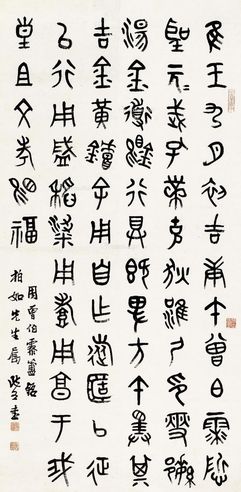 隹王九月初吉庚午曾白霥哲
聖元武孔黹克狄淮夷印燮繁
湯金道錫行具既卑方午擇其
吉金黃鏞余用自乍旅簠以征
以行用盛稻粱用孝用享于我
皇且文考賜福
周曾伯霥簠銘
柏如先生屬